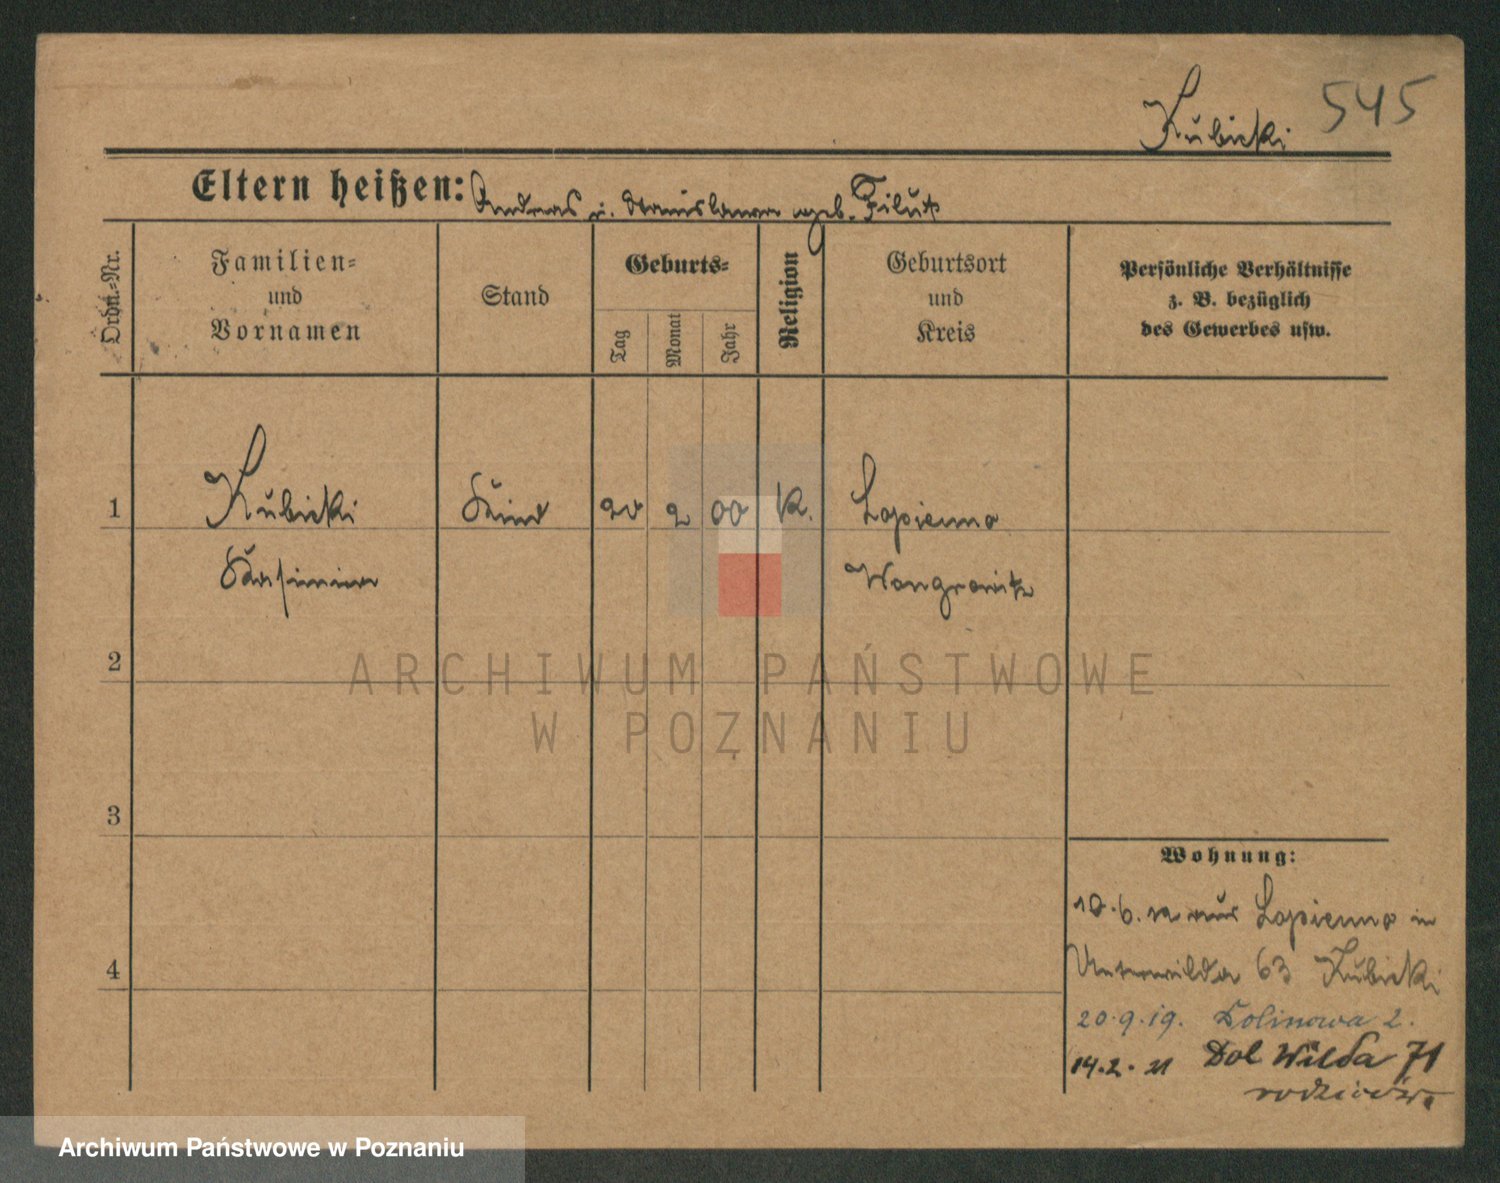 545
Kubicki
Eltern heißen: Andreas u. Stanislawa geb. Filut
Ordn.-Nr.
Familien-
und
Vornamen
Stand
Geburts-
Tag
Monat
Jahr
Religion
Geburtsort
und
Kreis
Persönliche Verhältnisse
z. B. bezüglich
des Gewerbes usw.
1
Kubicki
Kasimira
Kind
20
2
00
K.
Lopienno
Wongrowitz
2
3
4
Wohnung:
10.6. aus Lopienno in
Unterwilda 63 Kubicki
20.9.19. 2.
14.2.21 Dol Wilda 71
rodziców
ARCHIWUM PAŃSTWOWE
W POZNANIU
Archiwum Państwowe w Poznaniu